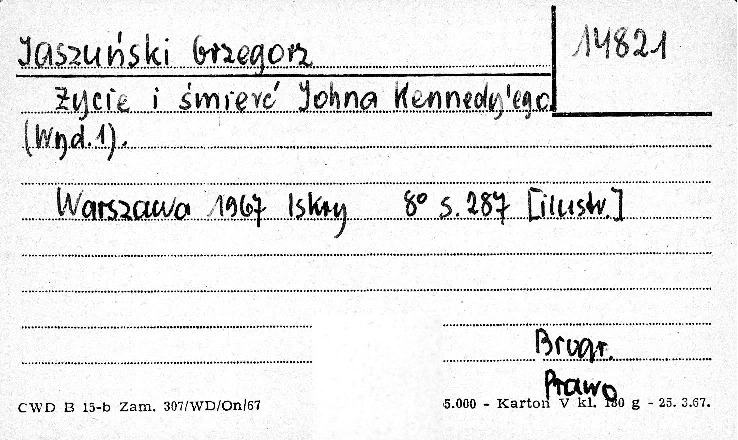 Jaszuński Grzegorz
14821
Życie i śmierć Johna Kennedy'ego
(Wyd. 1).
Warszawa 1967 Iskry 8° s. 287 [ilustr.]
Biogr.
Prawo
CWD B 15-b Zam. 307/WD/On/67
5.000 - Karton V kl. 180 g - 25. 3.67.